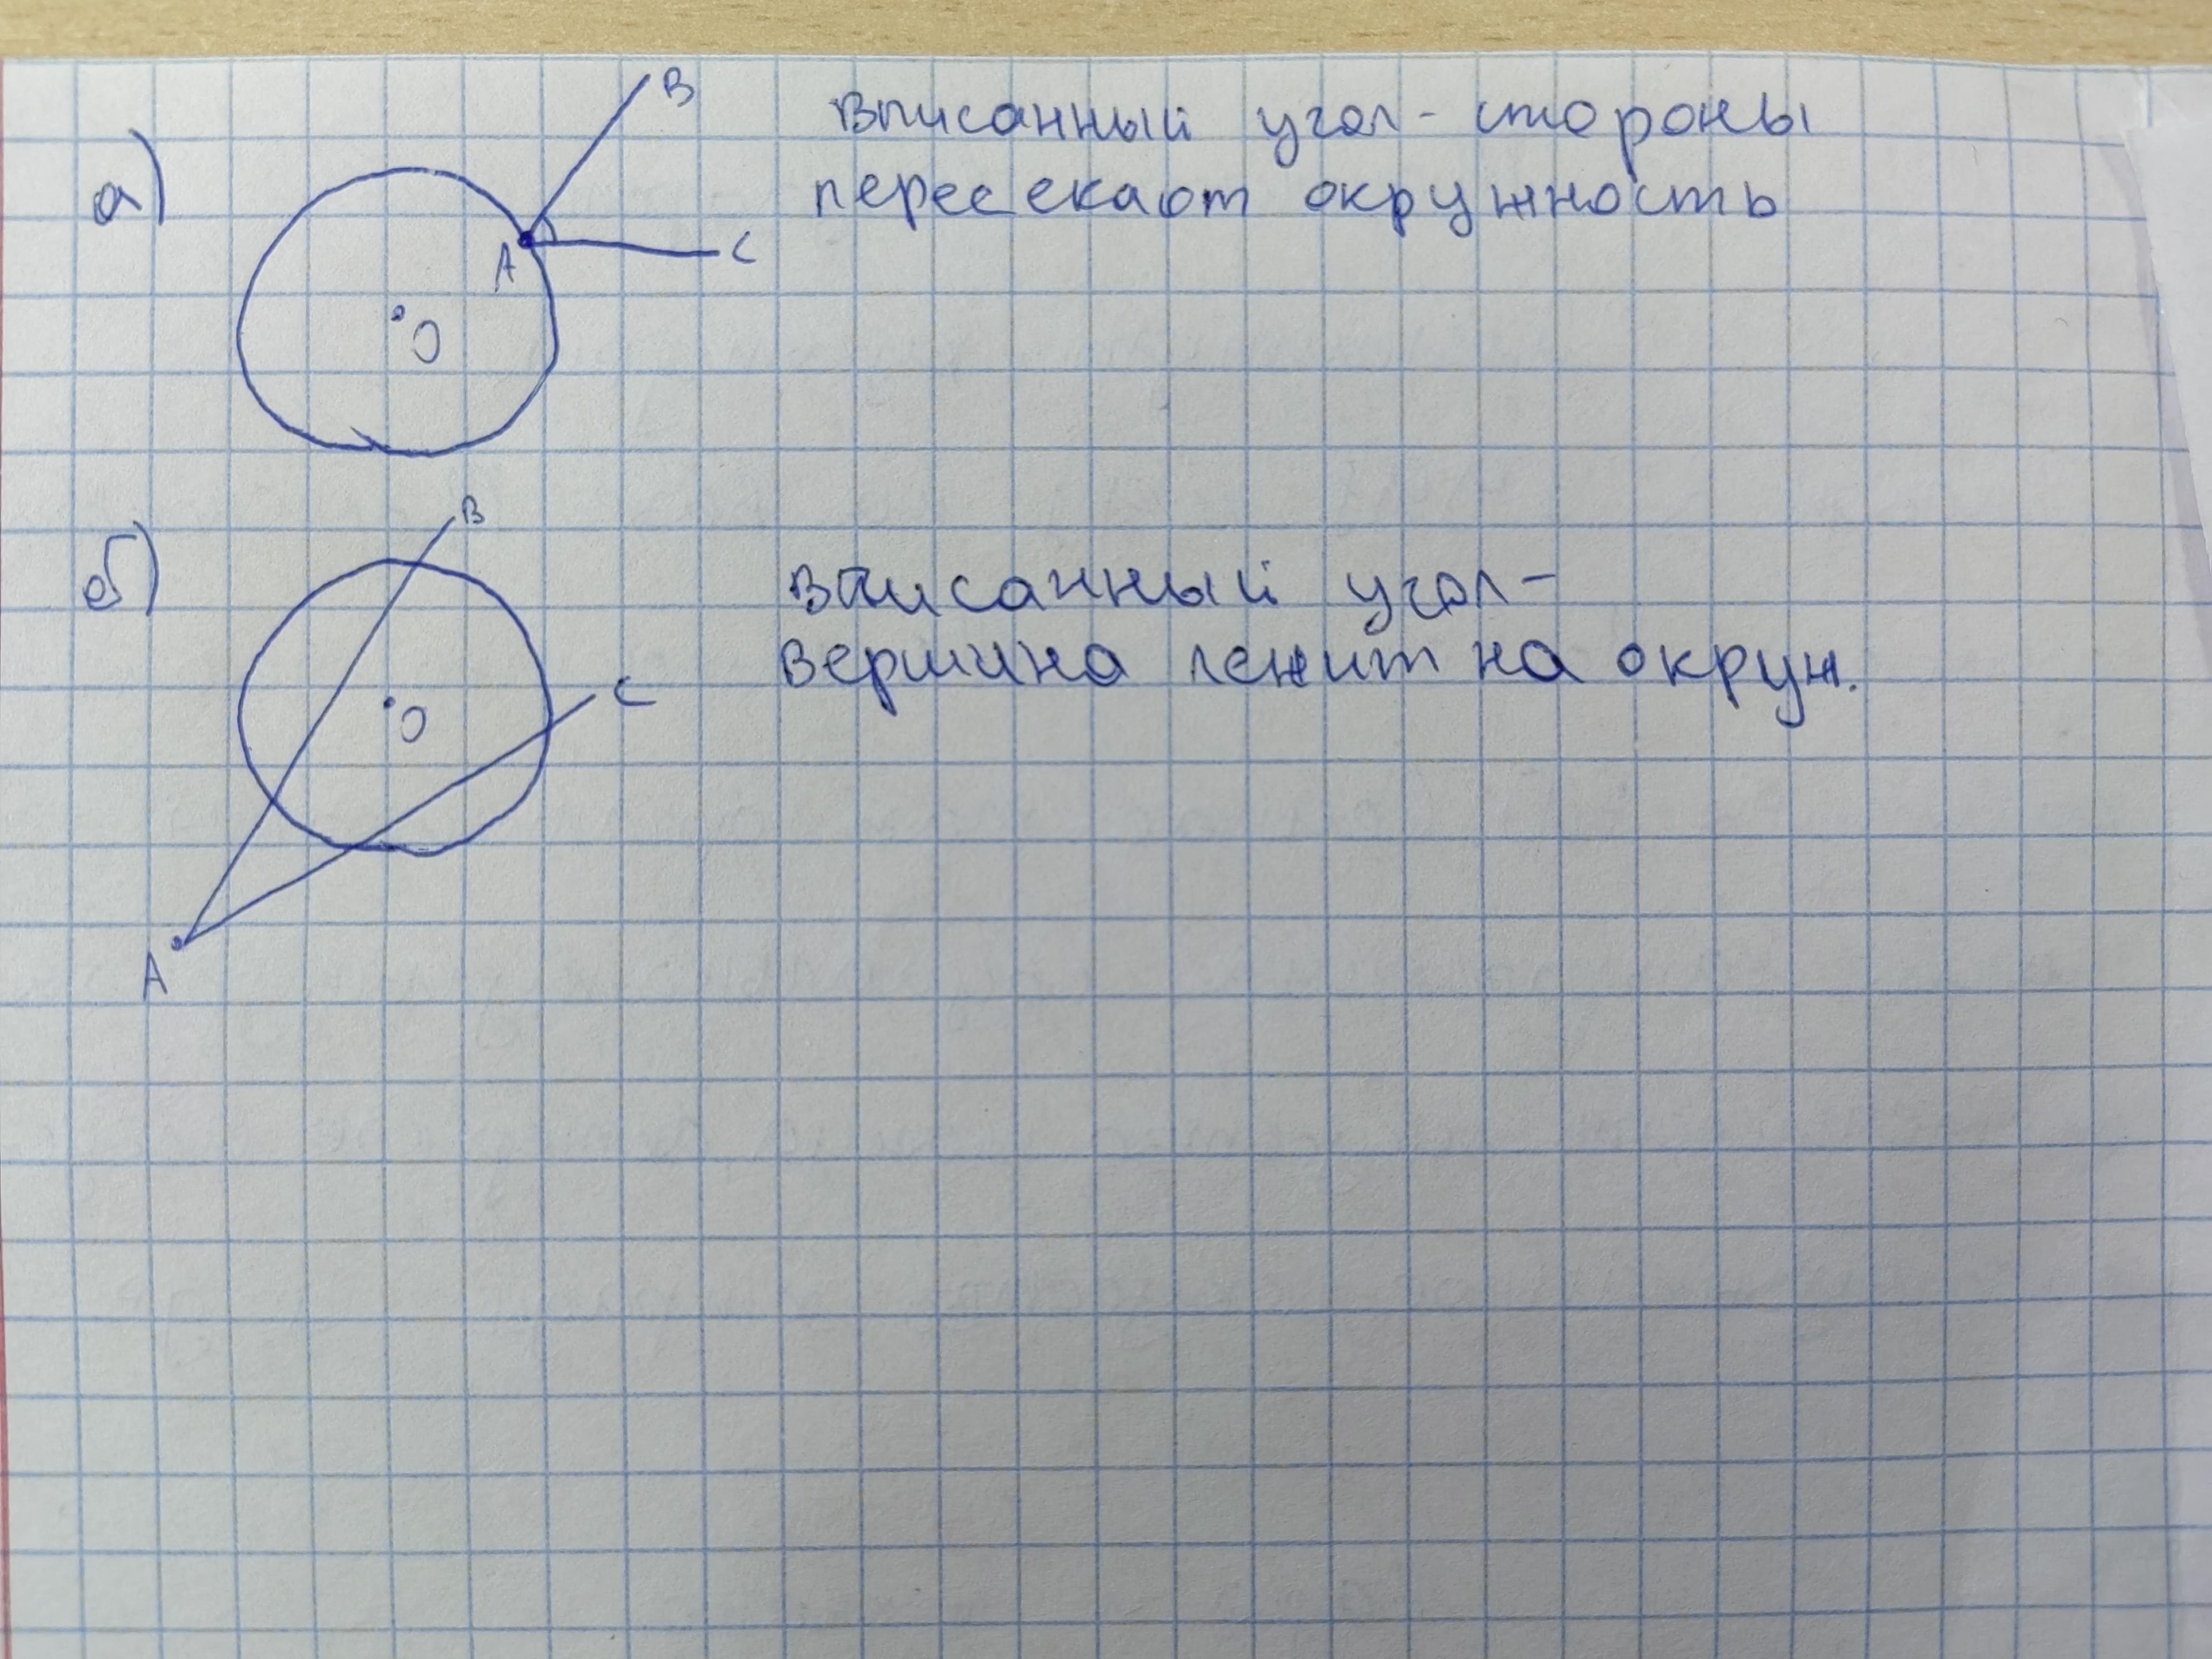 а)
B
A
C
O
Вписанный угол - стороны
пересекают окружность
б)
B
O
C
A
Вписанный угол -
вершина лежит на окруж.